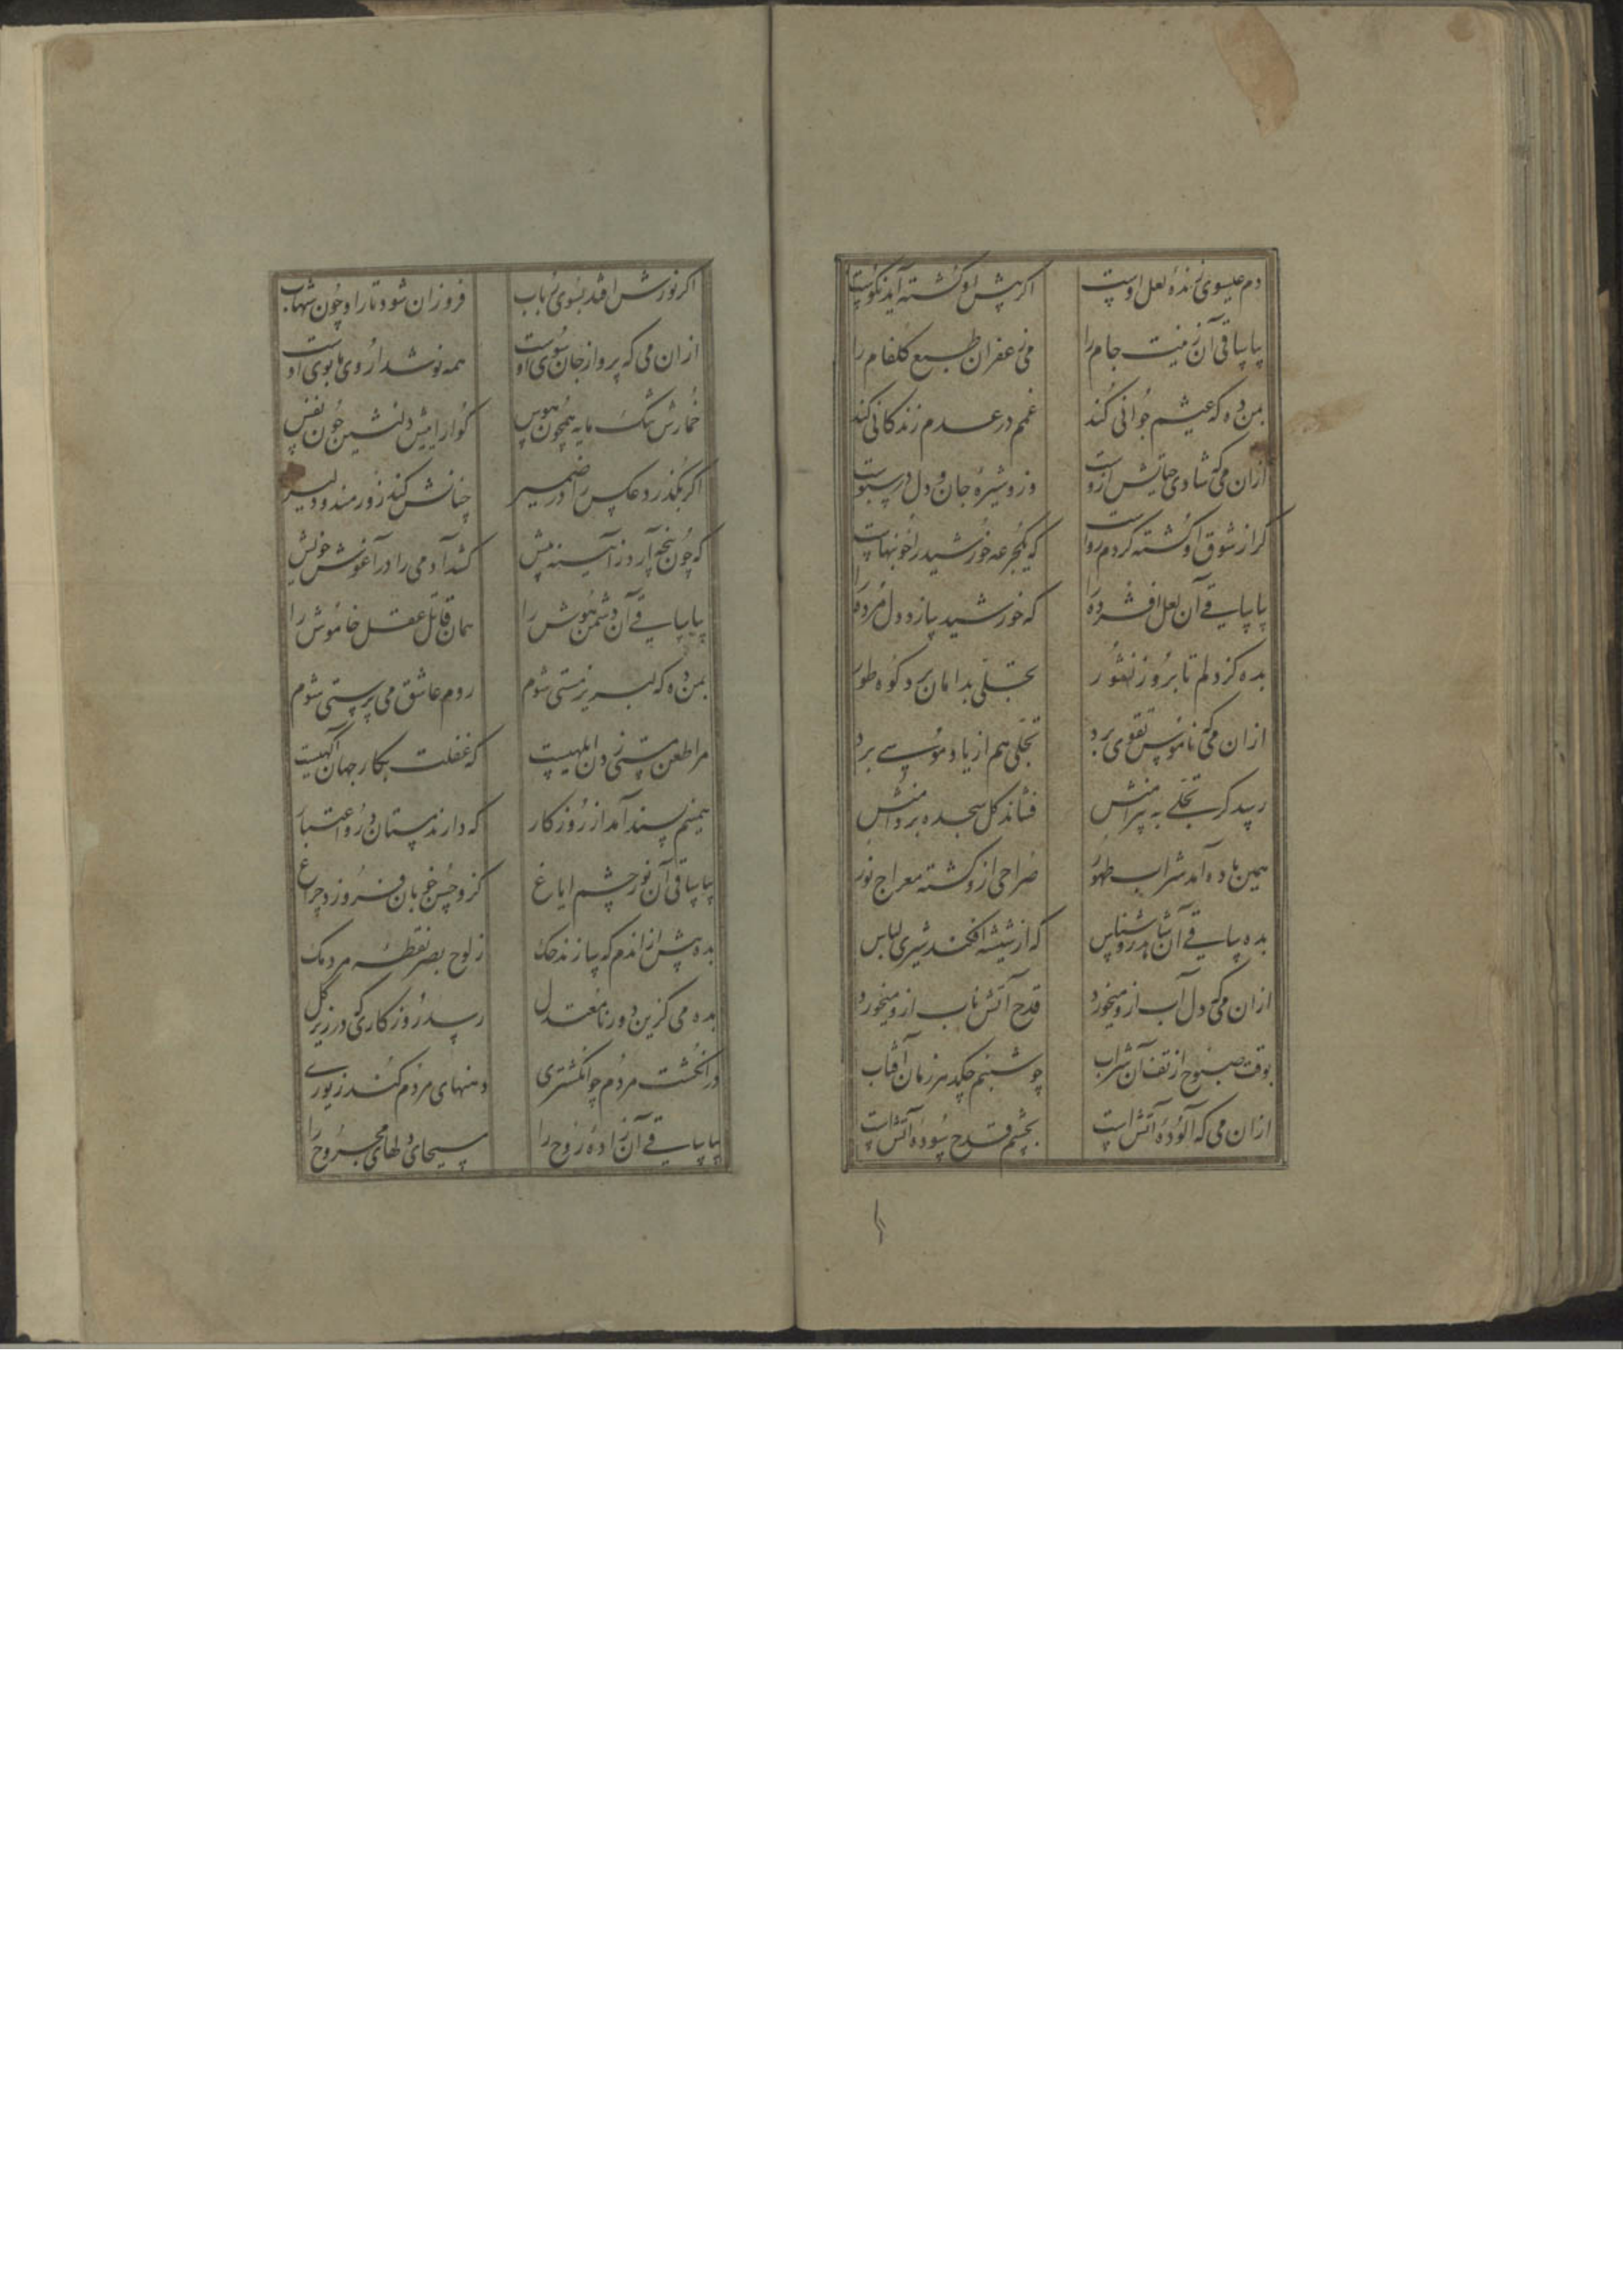 دم عیسوی زندهٔ لعل اوست اگر پیش او کشته آید نکوست
بیا ساقی آن زینت جام را می زعفران طبع گلفام را
بمن ده که عیشم جوانی کند غمم در عدم زندگانی کند
ازان می که شادی حیاتش ازوست وزو شیرهٔ جان و دل در سبوست
گر از شوق او کشته گردم رواست که یکجرعه خورشید را خونبهاست
بیا ساقی آن لعل افشرده را که خورشید سازد دل مرده را
بده کز دلم تا بروز نشور تجلی بدامان برد کوه طور
ازان می که ناموس تقوی برد تجلی هم از یاد موسی برد
رسد گر تجلی به پیرامنش فشاند گل سجده بر دامنش
همین باده آمد شراب طهور صراحی ازو گشته معراج نور
بده ساقی آن شاهد روشناس که از شیشه افکند شیری لباس
ازان می که دل آب ازو میخورد قدح آتش ناب ازو میخورد
بوقت صبوح از تف آن شراب چو شبنم چکد هر زمان آفتاب
ازان می که آلودهٔ آتش است بچشم قدح سودهٔ آتش است
اگر نورش افتد بسوی رباب فروزان شود تار او چون شهاب
ازان می که پرواز جان سوی اوست همه نوشد از وی ها بوی اوست
خمارش تنک مایه همچون هوس گوارایش دلنشین چون نفس
اگر بگذرد عکسش اندر ضمیر چنانش کند زورمند و دلیر
که چون پنجه آرد ز آیینه پیش کشد آدمی را در آغوش خویش
بیا ساقی آن دشمن هوش را همان قاتل عقل خاموش را
بمن ده که لبریز مستی شوم روم عاشق می پرستی شوم
مرا طعن مستی زدن ابلهیست که غفلت بکار جهان آگهیست
همینم پسند آمد از روزگار که دارند مستان درو اعتبار
بیا ساقی آن نور چشم ایاغ کزو حسن خوبان فروزد چراغ
بده پیش ازاندم که سازند حک ز لوح بصر نقطهٔ مردمک
بده می کزین دور نامعتدل رسد روزگاری که در زیر گل
در انگشت مردم چو انگشتری دهنهای مردم کند زیوری
بیا ساقی آن زادهٔ روح را مسیحای دلهای مجروح را